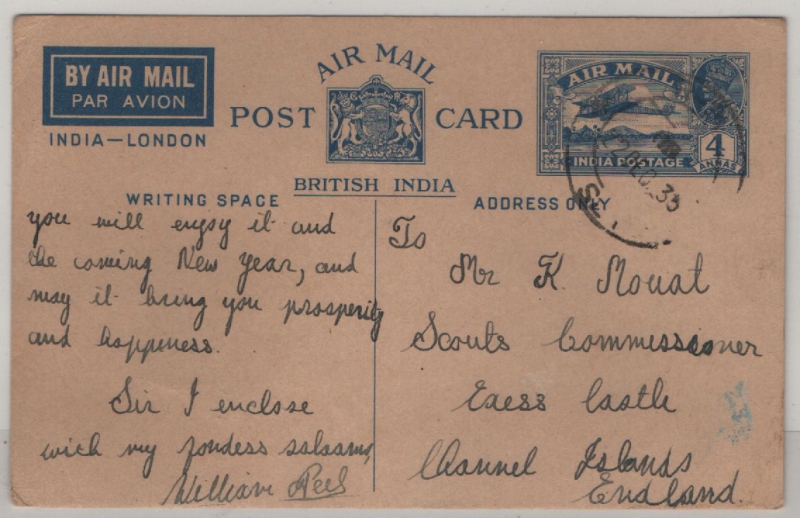 BY AIR MAIL
PAR AVION
INDIA—LONDON
AIR MAIL
POST CARD
BRITISH INDIA
AIR MAIL
INDIA POSTAGE
4
ANNAS
WRITING SPACE
ADDRESS ONLY
you will enjoy it and
the coming New Year, and
may it bring you prosperity
and happiness.
Sir I enclose
with my fondess salaams,
William Peel
To
Mr K. Mouat
Scouts Commissioner
Exess Castle
Channel Islands
Endland.